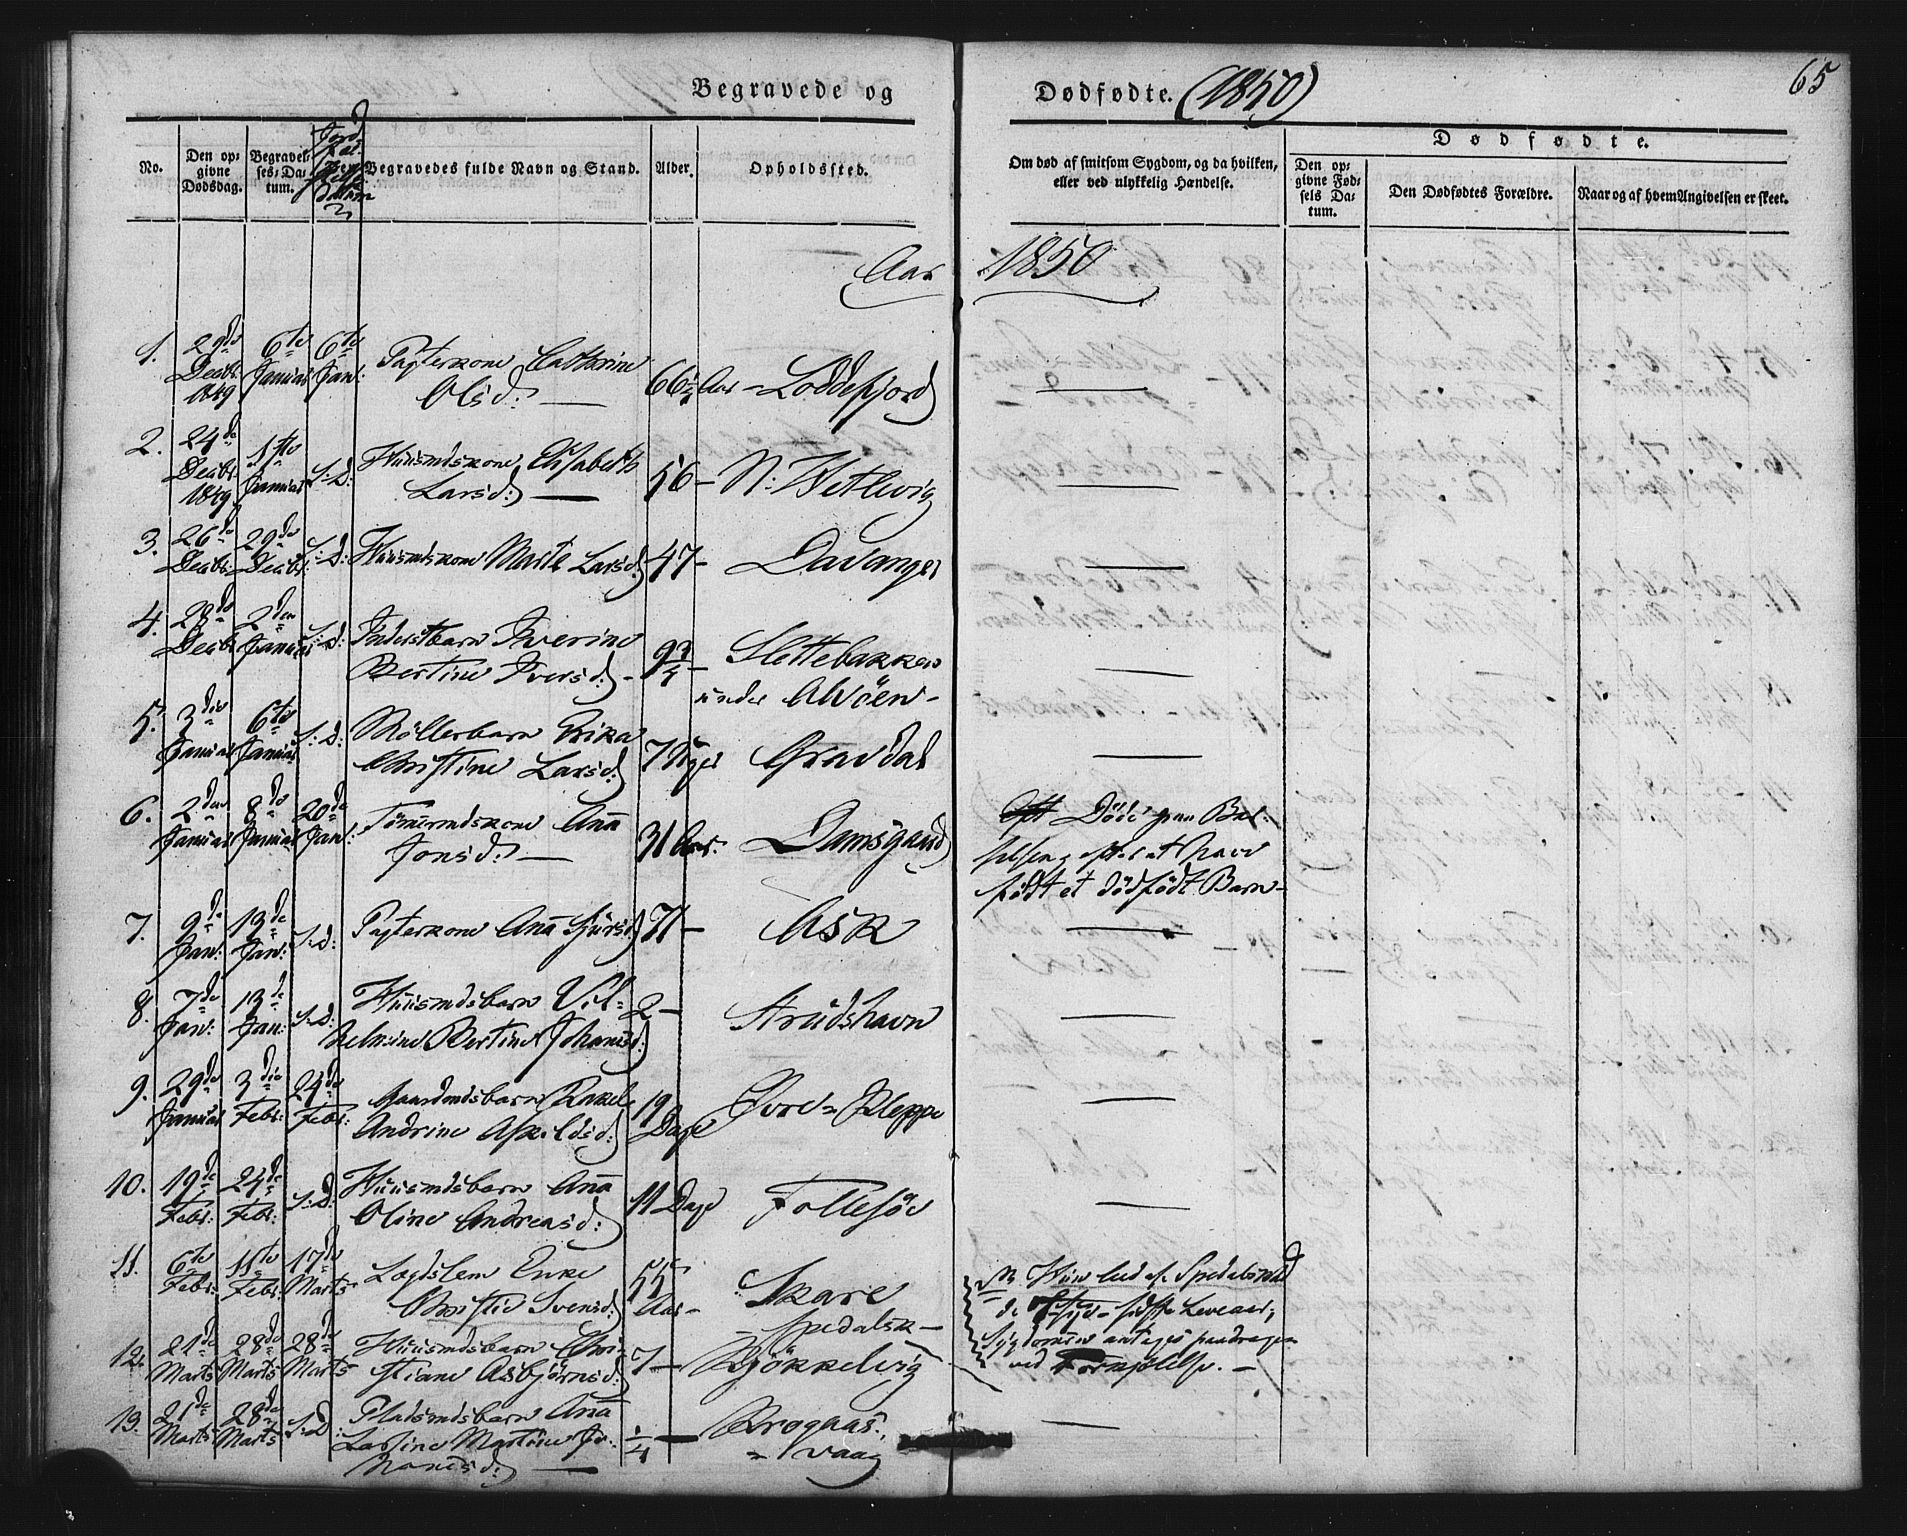 65
Begravede og Dødfødte. (1850)
Dødfødte.
No.
Den op-
givne
Dødsdag.
Begravel-
ses-Da-
tum.
Begravedes fulde Navn og Stand.
Alder.
Opholdssted.
Om død af smitsom Sygdom, og da hvilken,
eller ved ulykkelig Hændelse.
Den op-
givne Fød-
sels Da-
tum.
Den Dødfødtes Forældre.
Naar og af hvem Angivelsen er skeet.
Aar 1850
1. 29de Decbr: 1849 6te Januar 6te Jan: Pagterkone Cathrine
Olsd: — 66 Aar Loddefjord —
2. 24de Decbr: 1849 1ste Januar S: D: Huusmdskone Elisabeth
Larsd: — 56 — N: Hetlevig —
3. 26de Decbr: 29de Decbr: S: D: Huusmdskone Marte Larsd: 47 — Davanger —
4. 28de Decbr 2den Januar S: D: Inderstbarn Iverine
Bertine Iversd: 9 3/4 — Slettebakken
under Alvøen —
5. 3die Januar 6te Januar S: D: Møllerbarn Erika
Christine Larsd: 7 Uger Gravdal —
6. 2den Januar 8de Januar 20de Jan: Tømmrmdskone Anna
Jonsd: — 31 Aar. Damsgaard Døde paa Bar-
selseng efter at have
født et dødfødt Barn —
7. 9de Jan: 13de Jan: S: d: Pagterkone Anna Sjursd: 71 — Ask —
8. 7de Jan: 13de Jan: S: D: Huusmdsbarn Vil-
helmine Bertine Johannsd: 2 — Strudshavn —
9. 29de Januar 3die Febr: 24de Febr: Gaardmdsbarn Rakel
Andrine Askildsd: 19 Dage Øvre Kleppe —
10. 19de Febr: 24de Febr: S: D: Huusmdsbarn Anna
Oline Andreasd: 11 Dage Follesøe —
11. 6te Febr: 11te Febr: 17de Marts Lægdslem Enke
Christie Svensd: 55 Aar — Skare
Spedalsk —
Hun led af Spedalskhed
de sidste Leveaar;
Sygdommen antages paadragen
ved Forkjølelse. —
12. 21de Marts 28de Marts 28de Marts Huusmdsbarn Chri-
stiane Asbjørnsd: 7 — Bjøkkelvig
13. 21de Marts 28de Marts S: D: Pladsmdsbarn Anna
Lastine Martine Jo-
hannsd: — 1/4 — Krogaas-
vaag —